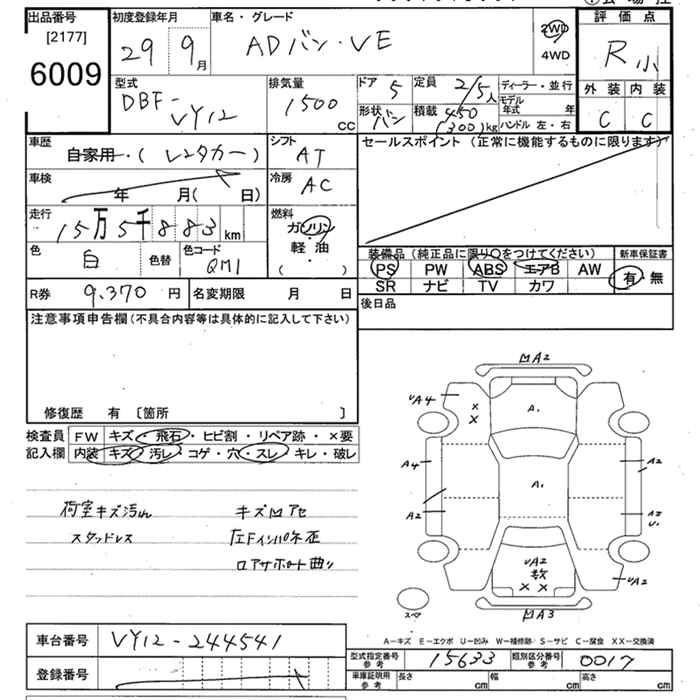 出品番号
[2177]
6009
初度登録年月
29 9月
車名・グレード
ADバン・VE
2WD
4WD
評価点
R小
型式
DBF-
VY12
排気量
1500
CC
ドア
5
定員
2/5人
ディーラー・並行
形状
バン
積載
450
(300)kg
モデル
年式 年
ハンドル 左・右
外装 内装
C C
車歴
自家用・(レンタカー)
シフト
AT
セールスポイント (正常に機能するものに限ります)
車検
年 月( 日)
冷房
AC
走行
15万5千883km
燃料
ガソリン
・
軽油
( )
色
白
色替
色コード
QM1
装備品 (純正品に限り○をつけてください)
新車保証書
PS PW ABS エアB AW
有・無
SR ナビ TV カワ
R券 9,370円
名変期限 月 日
後日品
注意事項申告欄(不具合内容等は具体的に記入して下さい)
修復歴 有 〔箇所 〕
検査員
記入欄
FW キズ・飛石・ヒビ割・リペア跡・×要
内装 キズ・汚レ・コゲ・穴・スレ・キレ・破レ
荷室キズ汚れ
スタッドレス
キズ凹アセ
左Fインパネ歪
ロアサポート曲り
凹A2
UA4
×
×
A1
A4
A2
A1
A2
A2
U1
UA2
数
× ×
UA2
スペア
凹A3
A-キズ E-エクボ U-凹み W-補修跡 S-サビ C-腐食 XX-交換済
車台番号
VY12-244541
登録番号
型式指定番号
参考
15633
類別区分番号
参考
0017
車庫証明用
参考
長さ cm
幅 cm
高さ cm